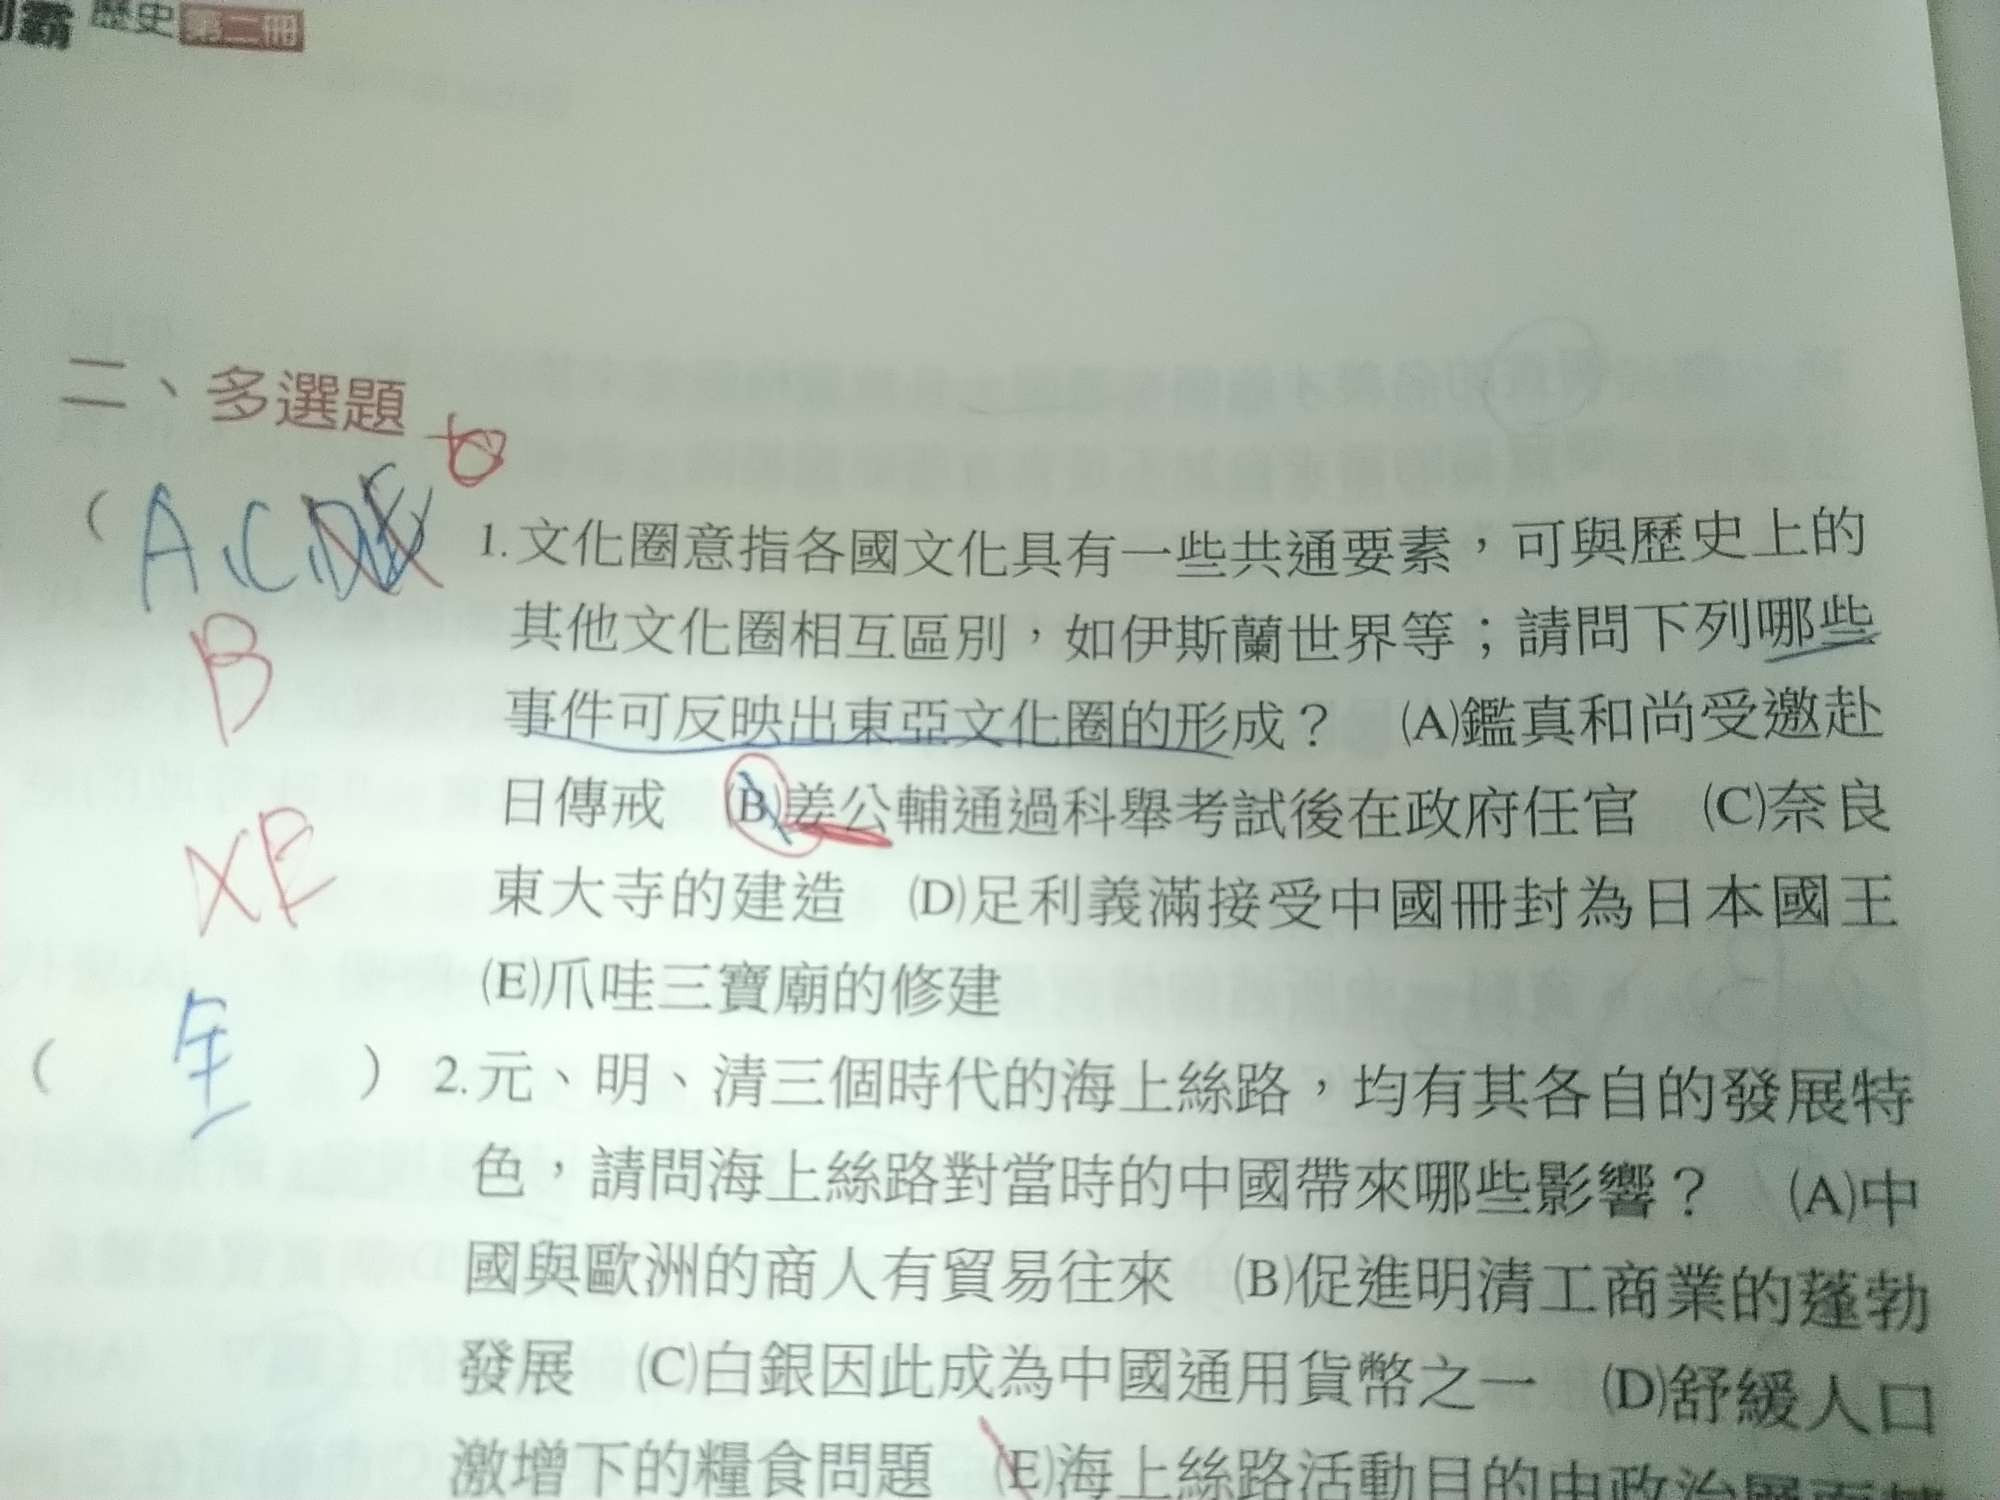 霸 歷史 第二冊
二、多選題
( A、C、
1.文化圈意指各國文化具有一些共通要素，可與歷史上的
B
其他文化圈相互區別，如伊斯蘭世界等；請問下列哪些
事件可反映出東亞文化圈的形成？ (A)鑑真和尚受邀赴
日傳戒 (B)姜公輔通過科舉考試後在政府任官 (C)奈良
XE
東大寺的建造 (D)足利義滿接受中國冊封為日本國王
(E)爪哇三寶廟的修建
( ) 2.元、明、清三個時代的海上絲路，均有其各自的發展特
色，請問海上絲路對當時的中國帶來哪些影響？ (A)中
國與歐洲的商人有貿易往來 (B)促進明清工商業的蓬勃
發展 (C)白銀因此成為中國通用貨幣之一 (D)舒緩人口
激增下的糧食問題 (E)海上絲路活動目的由政治層面轉